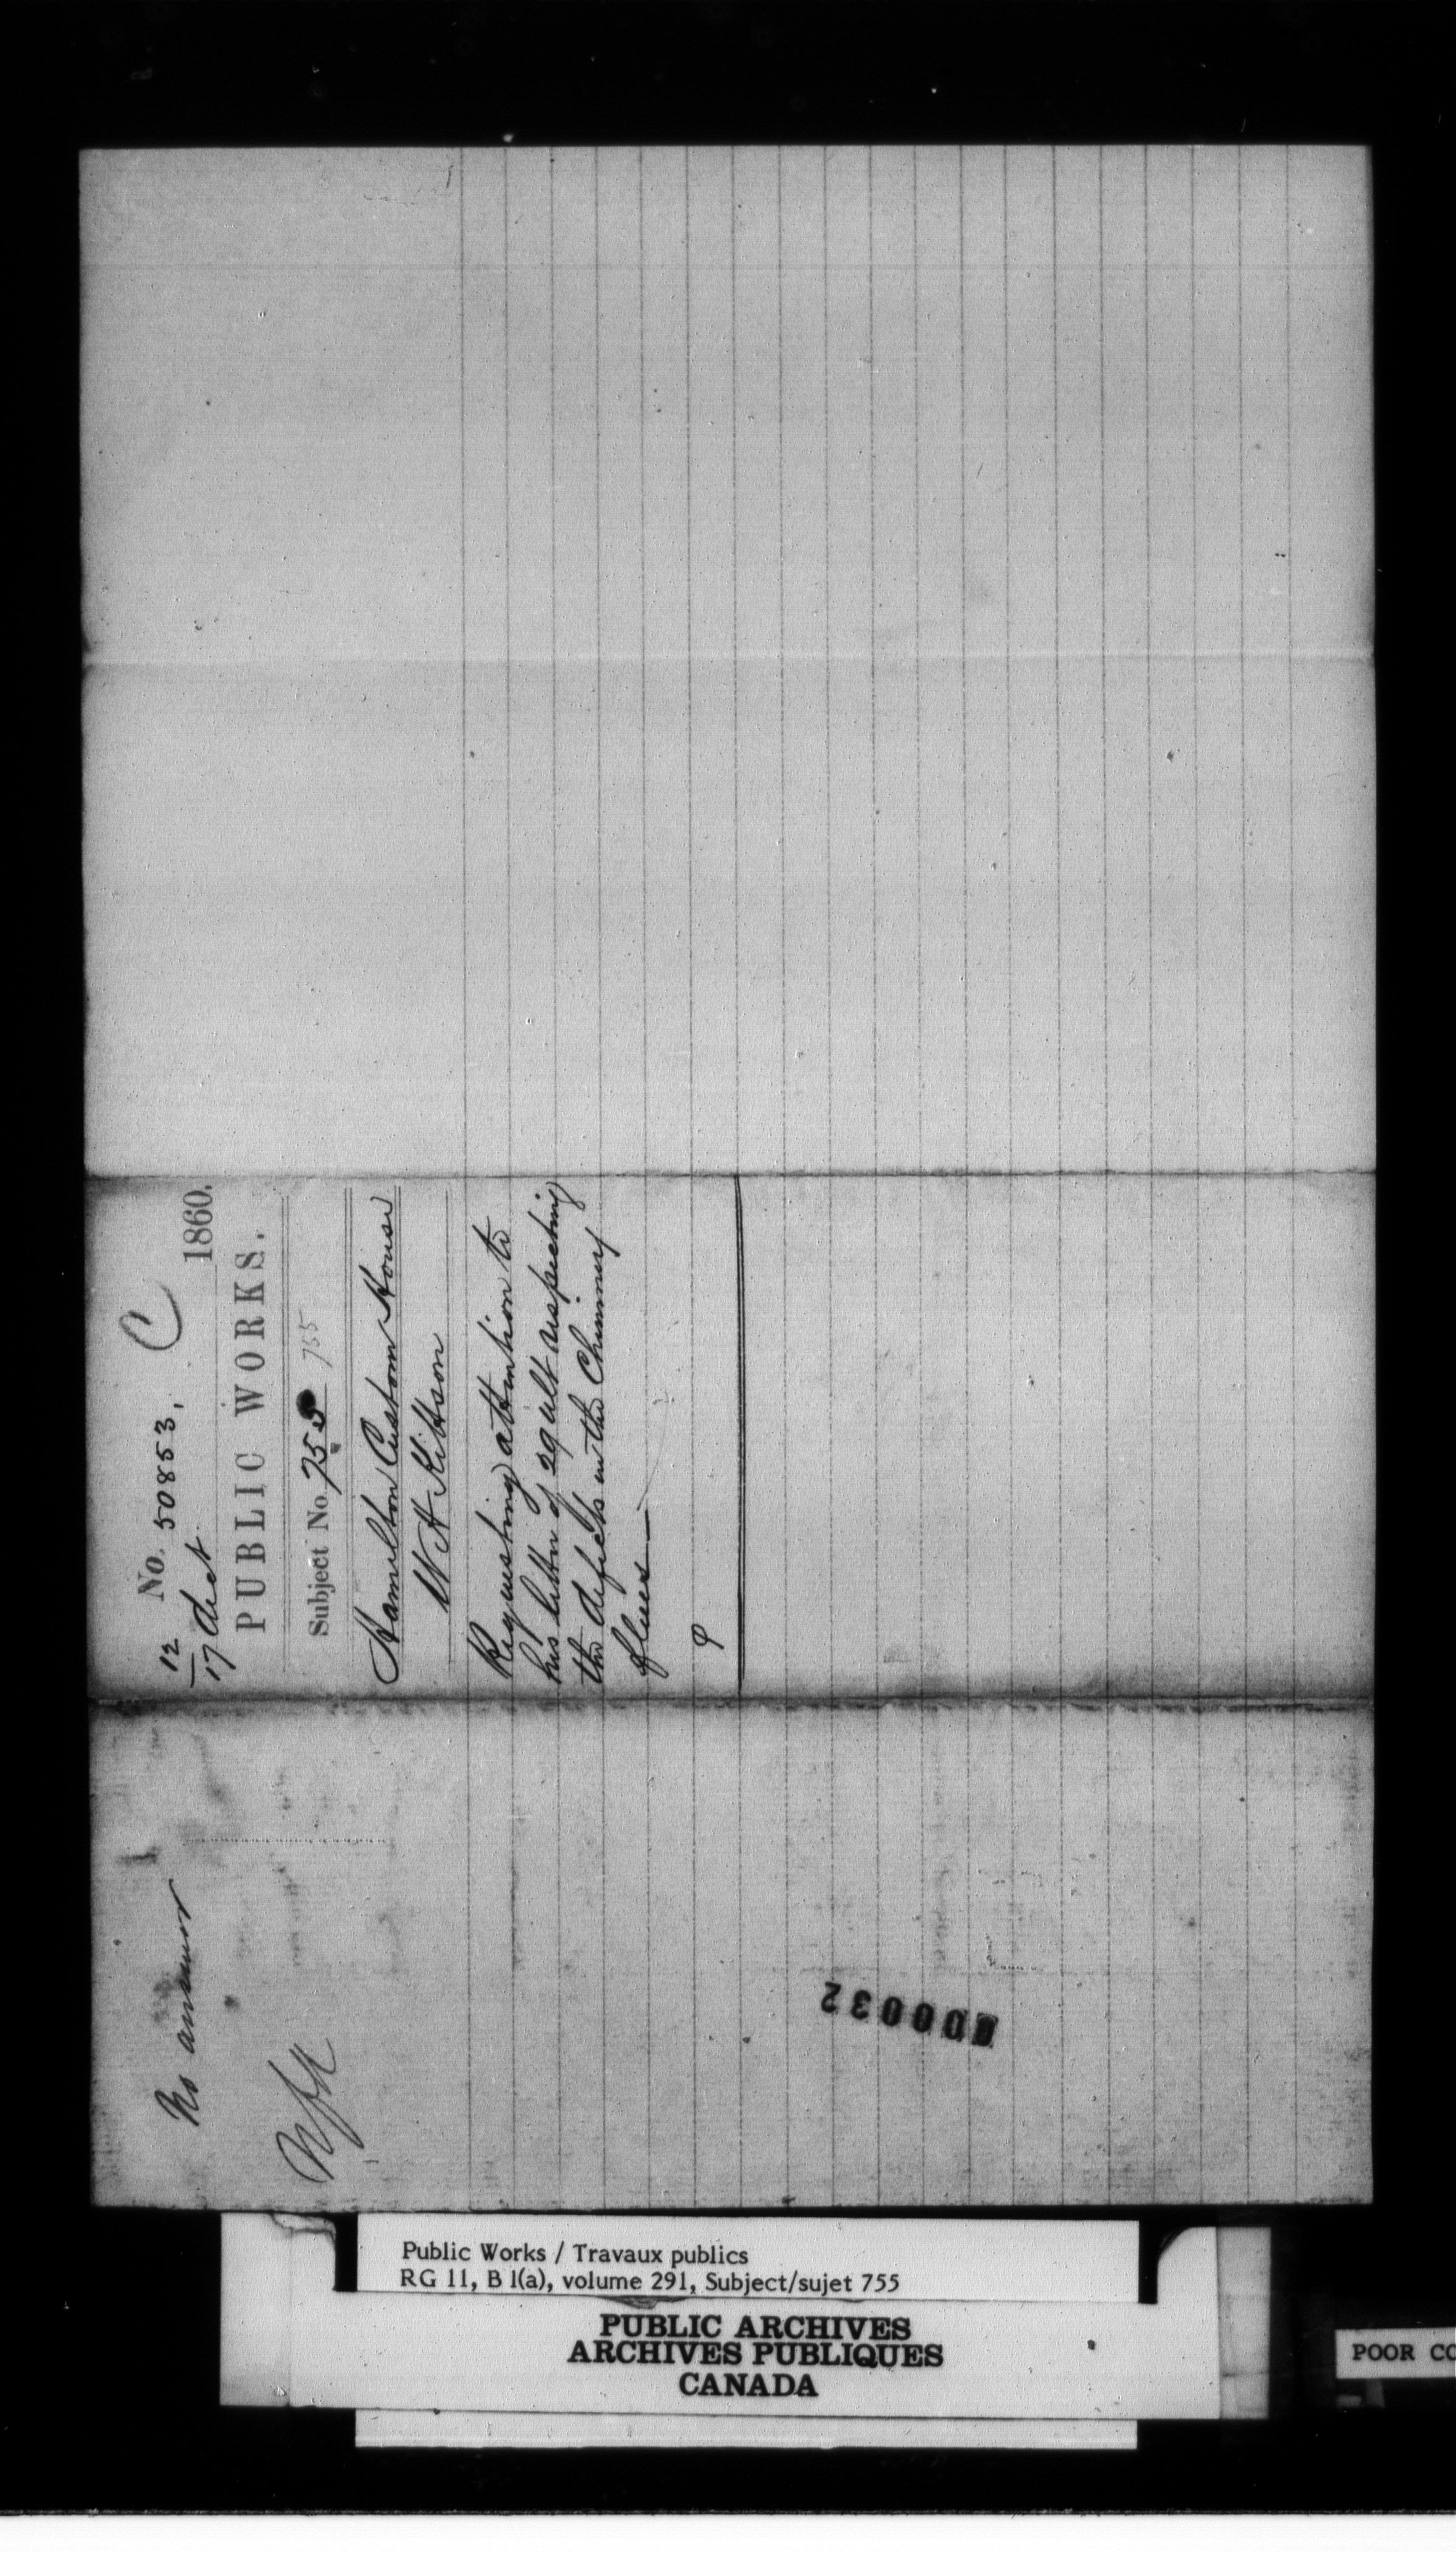 No. 50853, C
12
17 Dect 1860.
PUBLIC WORKS.
Subject No. 755 755
Hamilton Custom House
W H Kittson
Requesting attention to
his letter of 29 ult respecting
the defects in the Chimney
flues —
No answer
000032
Public Works / Travaux publics
RG 11, B 1(a), volume 291, Subject/sujet 755
PUBLIC ARCHIVES
ARCHIVES PUBLIQUES
CANADA
POOR CO